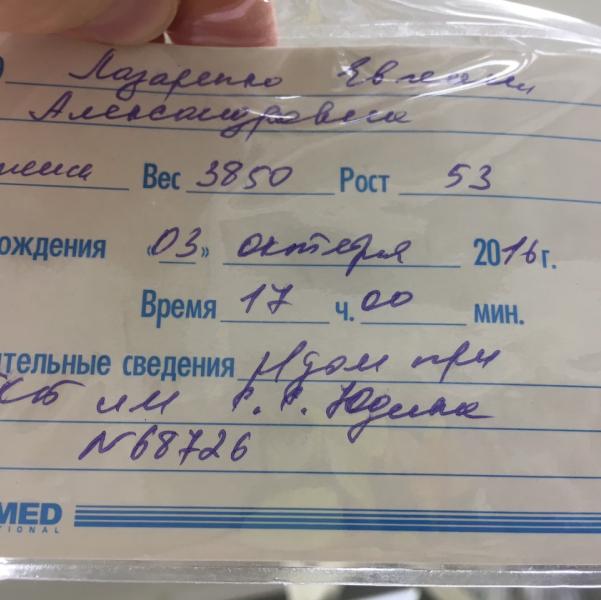 О Лазаренко Евгении
Александровна
Вес 3850 Рост 53
ождения «03» октября 2016 г.
Время 17 ч. 00 мин.
ительные сведения Р/дом при
им С.С. Юдина
N68726
MED
TIONAL